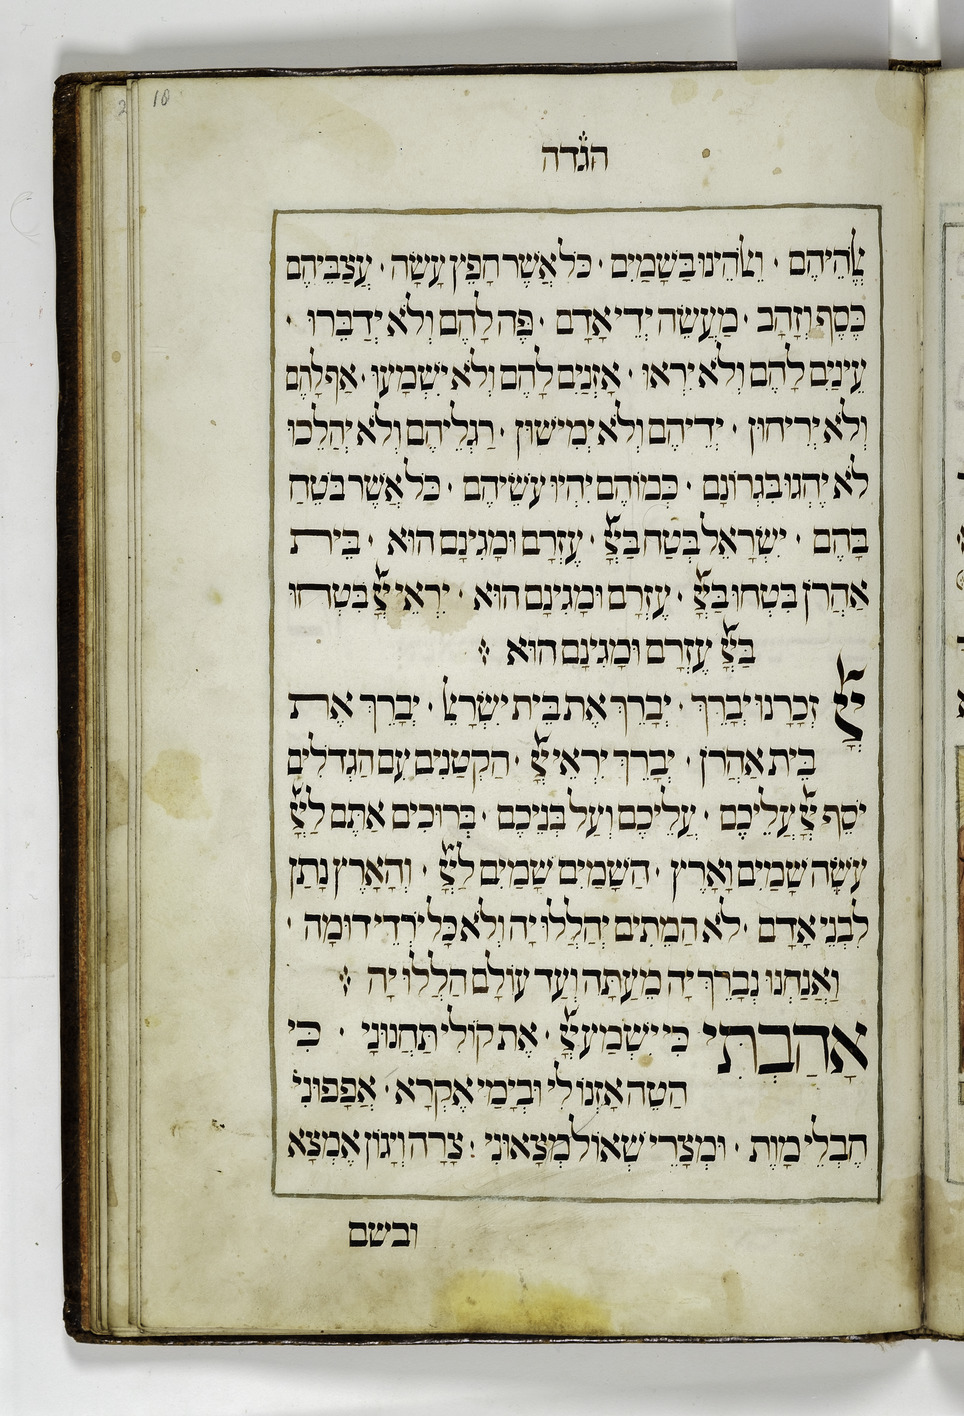 10
2
הגדה
אֱלֹהֵיהֶם · וֵאלֹהֵינוּ בַּשָּׁמַיִם · כֹּל אֲשֶׁר חָפֵץ עָשָׂה · עֲצַבֵּיהֶם
כֶּסֶף וְזָהָב · מַעֲשֵׂה יְדֵי אָדָם · פֶּה לָהֶם וְלֹא יְדַבֵּרוּ ·
עֵינַיִם לָהֶם וְלֹא יִרְאוּ · אָזְנַיִם לָהֶם וְלֹא יִשְׁמָעוּ · אַף לָהֶם
וְלֹא יְרִיחוּן · יְדֵיהֶם וְלֹא יְמִישׁוּן · רַגְלֵיהֶם וְלֹא יְהַלֵּכוּ
לֹא יֶהְגּוּ בִּגְרוֹנָם · כְּמוֹהֶם יִהְיוּ עֹשֵׂיהֶם · כֹּל אֲשֶׁר בֹּטֵחַ
בָּהֶם · יִשְׂרָאֵל בְּטַח בַּיְיָ · עֶזְרָם וּמָגִינָם הוּא · בֵּית
אַהֲרֹן בִּטְחוּ בַּיְיָ · עֶזְרָם וּמָגִינָם הוּא · יִרְאֵי יְיָ בִּטְחוּ
בַּיְיָ עֶזְרָם וּמָגִינָם הוּא
יְיָ זְכָרָנוּ יְבָרֵךְ · יְבָרֵךְ אֶת בֵּית יִשְׂרָאֵל · יְבָרֵךְ אֶת
בֵּית אַהֲרֹן · יְבָרֵךְ יִרְאֵי יְיָ · הַקְּטַנִּים עִם הַגְּדֹלִים
יֹסֵף יְיָ עֲלֵיכֶם · עֲלֵיכֶם וְעַל בְּנֵיכֶם · בְּרוּכִים אַתֶּם לַיְיָ
עֹשֵׂה שָׁמַיִם וָאָרֶץ · הַשָּׁמַיִם שָׁמַיִם לַיְיָ · וְהָאָרֶץ נָתַן
לִבְנֵי אָדָם · לֹא הַמֵּתִים יְהַלְלוּ יָהּ וְלֹא כָּל יֹרְדֵי דוּמָה ·
וַאֲנַחְנוּ נְבָרֵךְ יָהּ מֵעַתָּה וְעַד עוֹלָם הַלְלוּ יָהּ
אָהַבְתִּי כִּי יִשְׁמַע יְיָ · אֶת קוֹלִי תַּחֲנוּנָי · כִּי
הִטָּה אָזְנוֹ לִי וּבְיָמַי אֶקְרָא · אֲפָפוּנִי
חֶבְלֵי מָוֶת · וּמְצָרֵי שְׁאוֹל מְצָאוּנִי : צָרָה וְיָגוֹן אֶמְצָא
ובשם